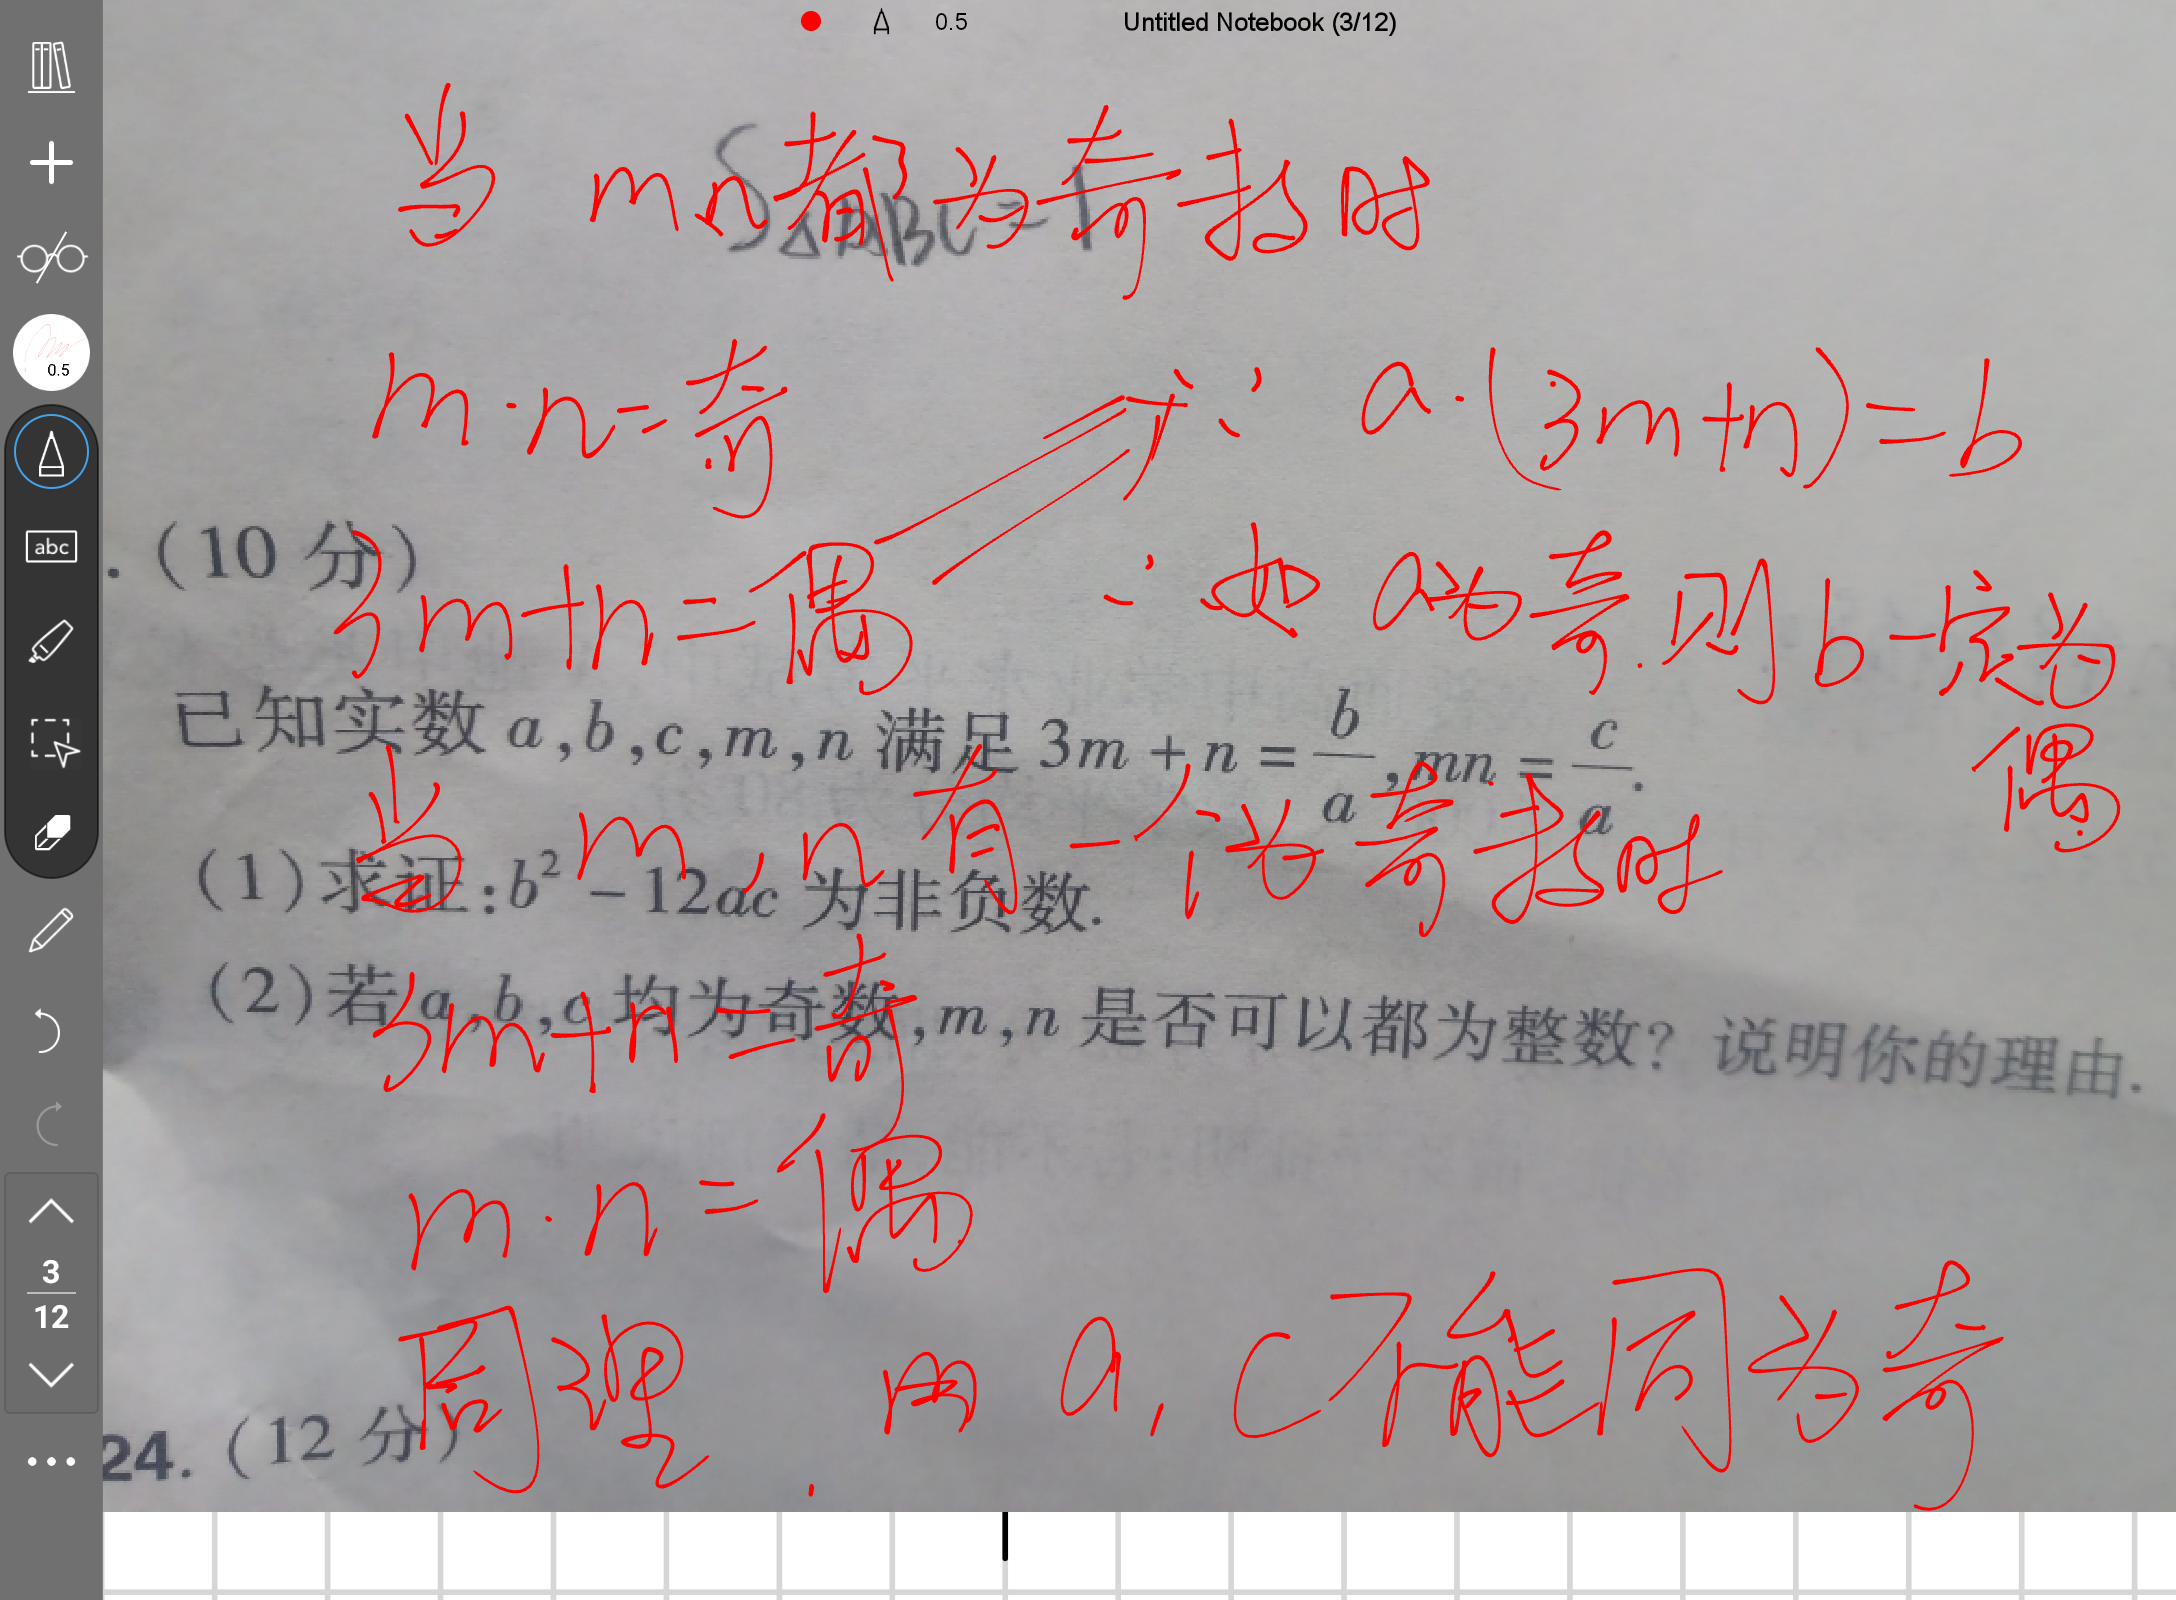 0.5 Untitled Notebook (3/12)
当 m n都为奇数时
S△ABC=1
m·n=奇
∵ a·(3m+n)=b
0.5
abc
.(10 分)
3m+n=偶
∴如 a为奇.则b一定为
偶
已知实数 a,b,c,m,n 满足 3m + n = b/a ,mn = c/a.
当 m,n有一个为奇数时
(1)求证:b² − 12ac 为非负数.
(2)若 a,b,c 均为奇数,m,n 是否可以都为整数? 说明你的理由.
3m+n=奇
m·n=偶
3
12
同理. 由 a,c不能同为奇
24.(12 分)